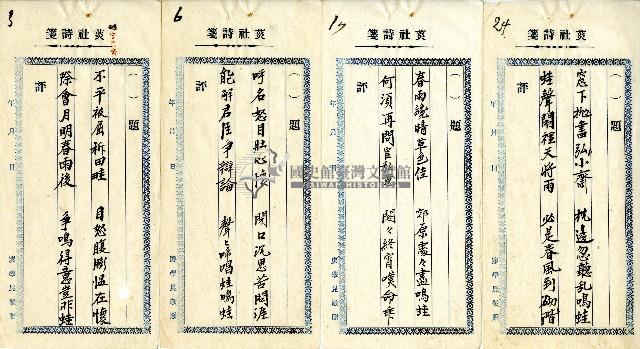 24
箋詩社萸
(一)題
窓下抛書 小齋 枕邊忽聽乱鳴蛙
蛙聲鬧裡天將雨 必是春風到砌階
評
年 月 日
17
箋詩社萸
(一)題
春雨 晴草色佳 郊原處々盡鳴蛙
何須再問官 閣々終宵嘆命乖
評
年 月 日
6
箋詩社萸
(一)題
呼名怒目壯心 開口沉思苦悶涯
能解君 爭辯論 聲々啼唱蛙鳴蛙
評
年 月 日
3
箋詩社萸
(一)題
不平被屬 田畦 目怒腹膨恒在懷
際會月明春雨後 爭鳴得意豈非蛙
評
年 月 日
國史館臺灣文獻館
TAIWAN HISTORICA